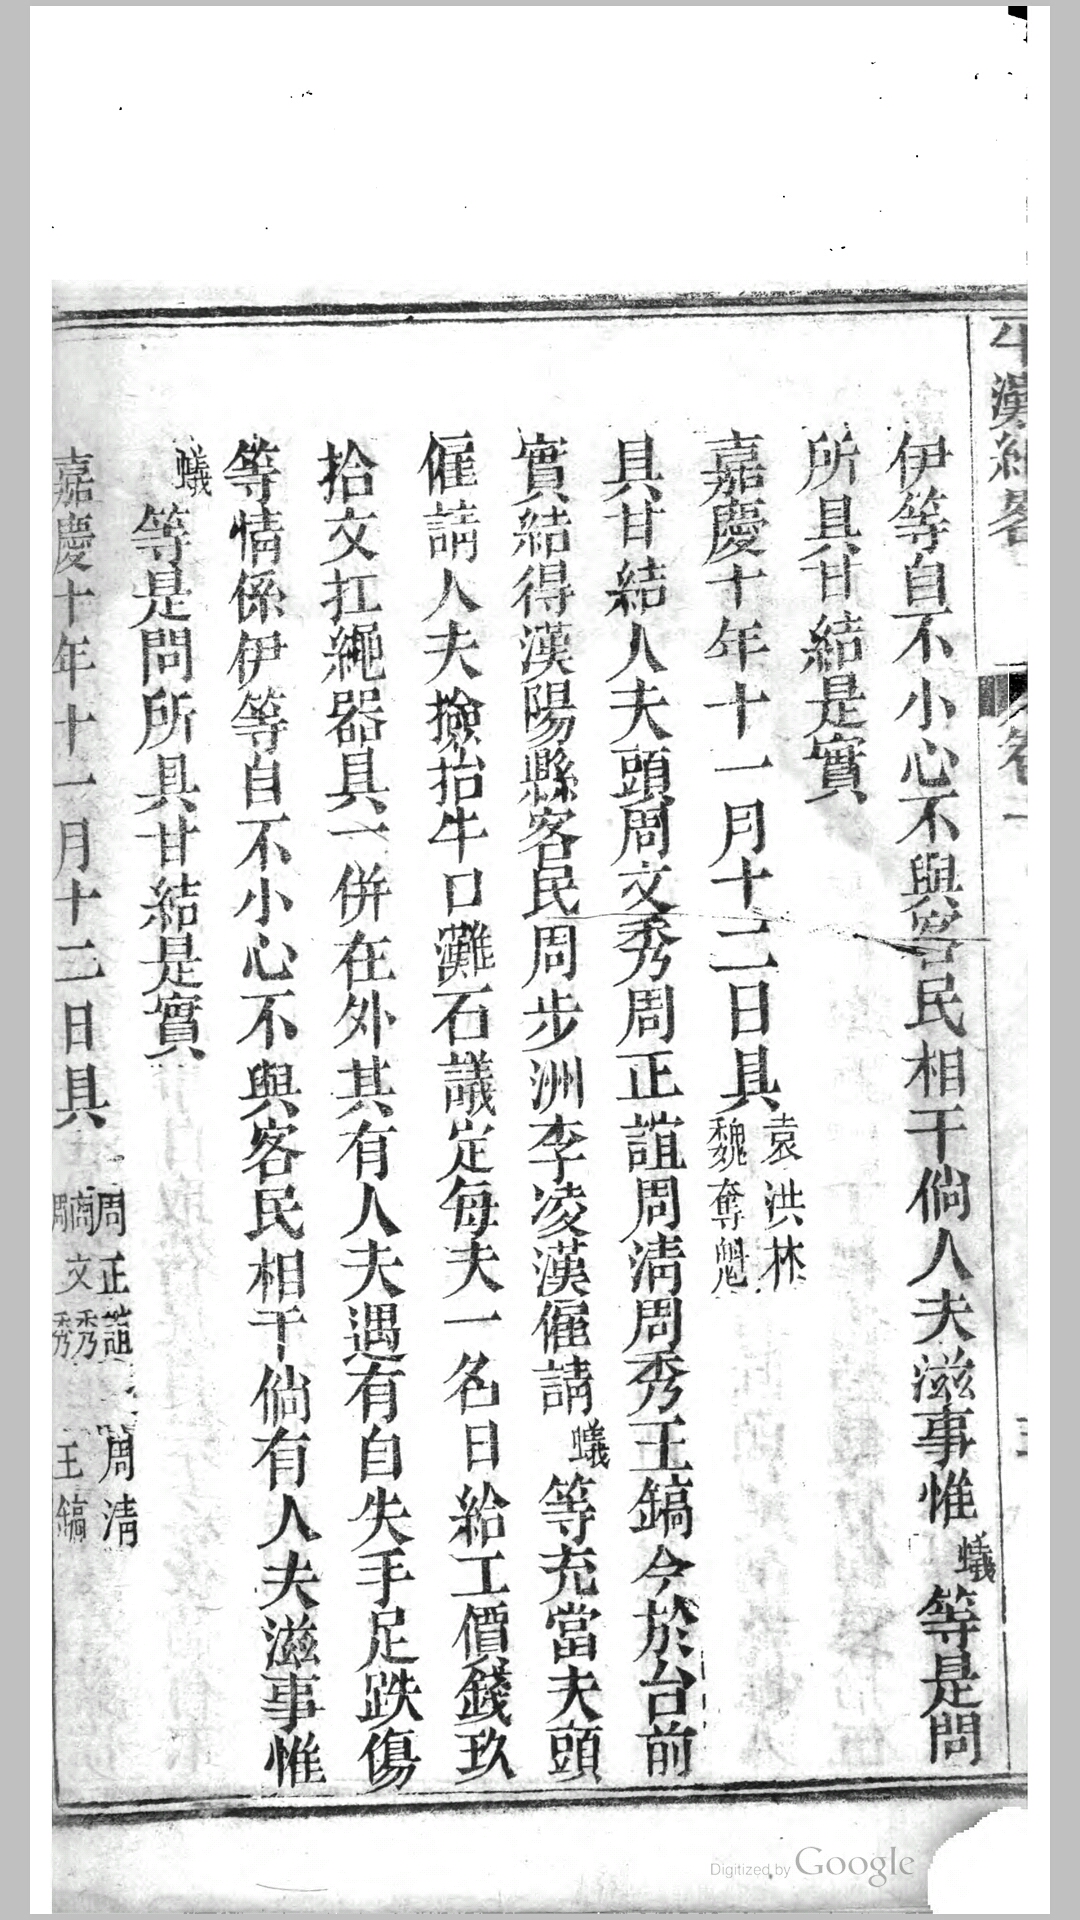 伊等自不小心不與客民相干倘人夫滋事惟蟻等是問
所具甘結是實
嘉慶十年十一月十二日具
袁洪林
魏奪魁
具甘結人夫頭周文秀周正誼周清周秀王鎬今於台前
實結得漢陽縣客民周步洲李凌漢僱請蟻等充當夫頭
僱請人夫撿抬牛口灘石議定每夫一名日給工價錢玖
拾文扛繩器具一併在外其有人夫遇有自失手足跌傷
等情係伊等自不小心不與客民相干倘有人夫滋事惟
蟻等是問所具甘結是實
嘉慶十年十一月十二日具
周正誼 周清
文秀
秀 王鎬
Digitized by Google